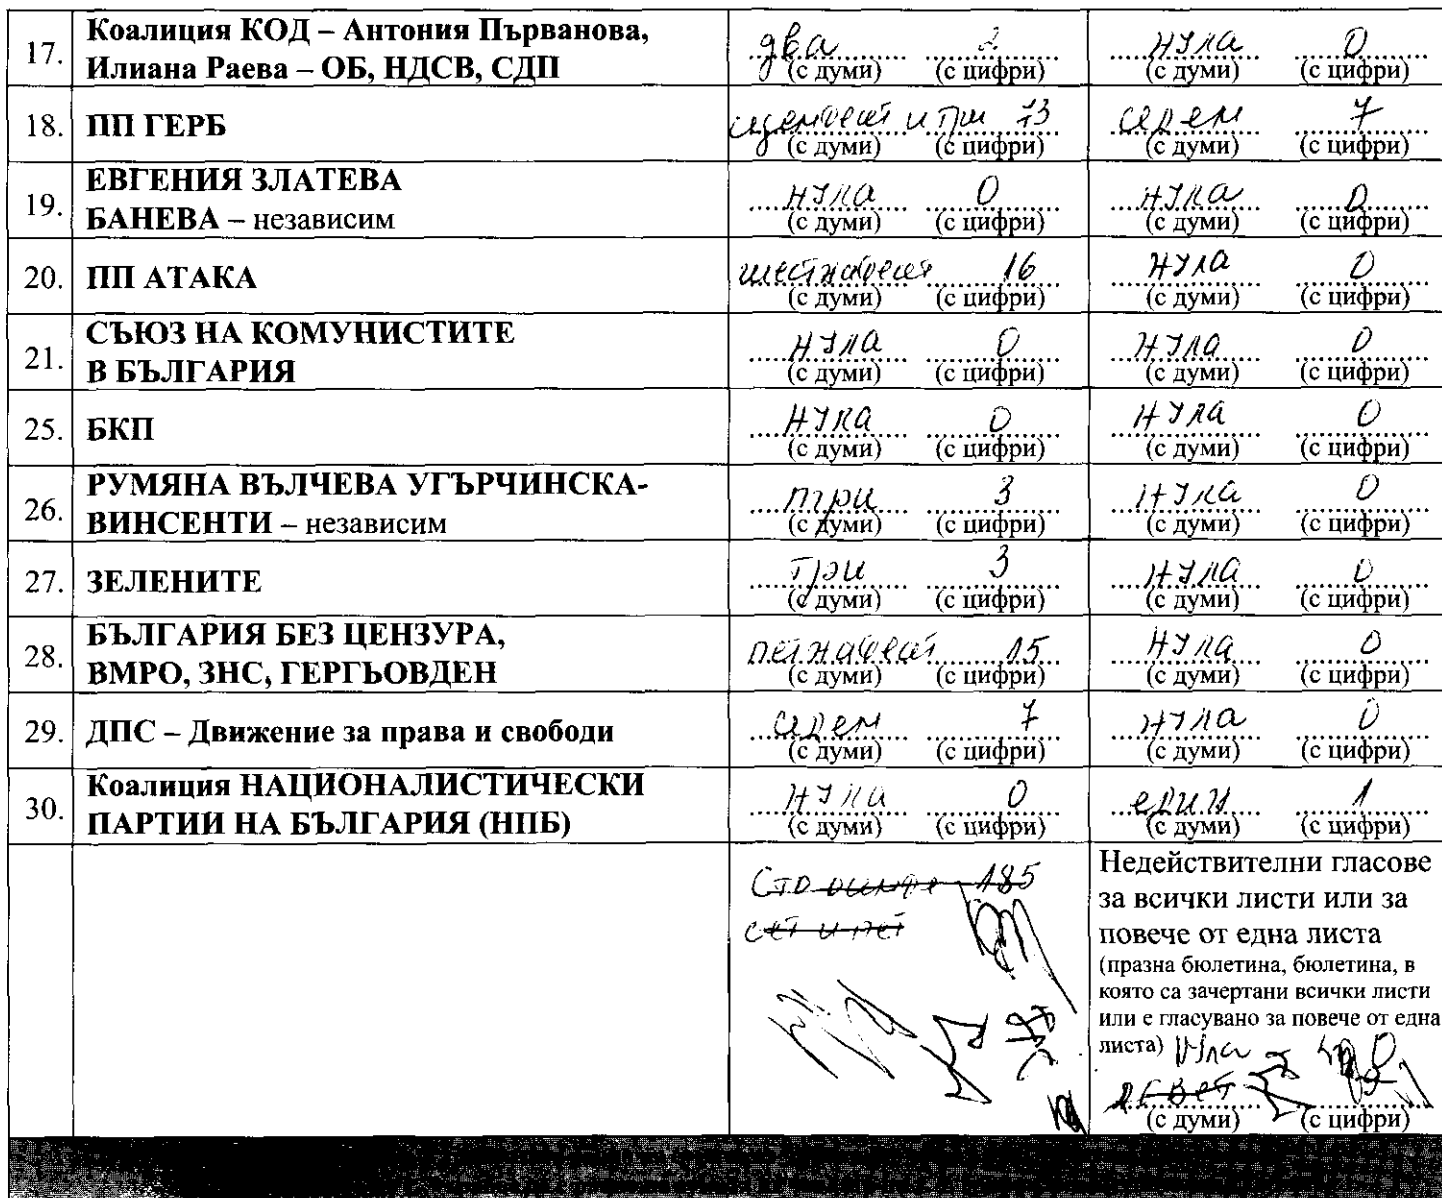 17. Коалиция КОД – Антония Първанова, Илиана Раева – ОБ, НДСВ, СДП два 2 нула 0
(с думи) (с цифри) (с думи) (с цифри)
18. ПП ГЕРБ седемдесет и три 73 седем 7
(с думи) (с цифри) (с думи) (с цифри)
19. ЕВГЕНИЯ ЗЛАТЕВА БАНЕВА – независим нула 0 нула 0
(с думи) (с цифри) (с думи) (с цифри)
20. ПП АТАКА шестнадесет 16 нула 0
(с думи) (с цифри) (с думи) (с цифри)
21. СЪЮЗ НА КОМУНИСТИТЕ В БЪЛГАРИЯ нула 0 нула 0
(с думи) (с цифри) (с думи) (с цифри)
25. БКП нула 0 нула 0
(с думи) (с цифри) (с думи) (с цифри)
26. РУМЯНА ВЪЛЧЕВА УГЪРЧИНСКА-ВИНСЕНТИ – независим три 3 нула 0
(с думи) (с цифри) (с думи) (с цифри)
27. ЗЕЛЕНИТЕ три 3 нула 0
(с думи) (с цифри) (с думи) (с цифри)
28. БЪЛГАРИЯ БЕЗ ЦЕНЗУРА, ВМРО, ЗНС, ГЕРГЬОВДЕН петнадесет 15 нула 0
(с думи) (с цифри) (с думи) (с цифри)
29. ДПС – Движение за права и свободи седем 7 нула 0
(с думи) (с цифри) (с думи) (с цифри)
30. Коалиция НАЦИОНАЛИСТИЧЕСКИ ПАРТИИ НА БЪЛГАРИЯ (НПБ) нула 0 един 1
(с думи) (с цифри) (с думи) (с цифри)
Сто осемде 185
сет и пет
Недействителни гласове
за всички листи или за
повече от една листа
(празна бюлетина, бюлетина, в
която са зачертани всички листи
или е гласувано за повече от една
листа) нула 0
девет
(с думи) (с цифри)